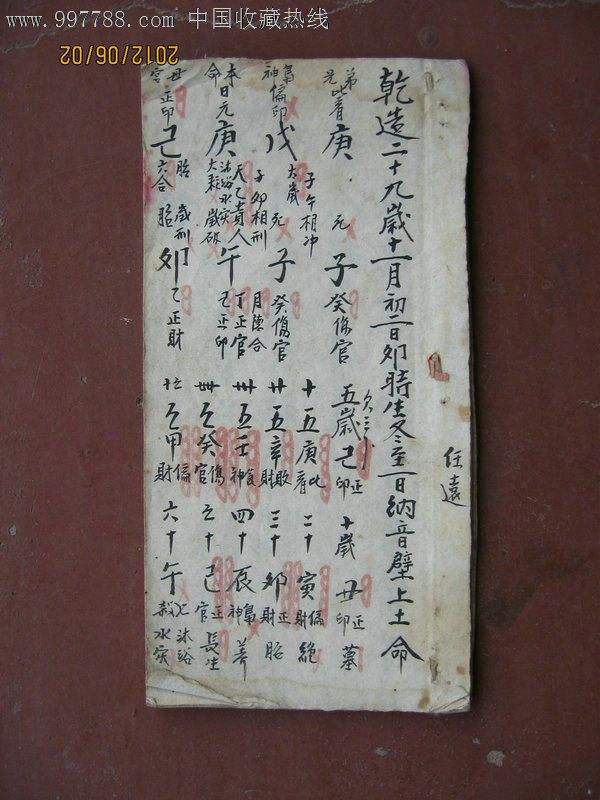 www.997788.com 中国收藏热线
2012/06/02
任遠
乾造二十九歲十一月初二日卯時生冬至一日納音壁上土命
弟兄比看
庚
死
子
癸傷官
五歲己正印
十歲丑正印墓
子午相冲
十五庚比看
二十寅偏財絕
梟神偏印
戊
大歲
死
子
癸傷官
廿五辛敗財
三十卯正財胎
子卯相刑
月德合
本命日元
庚
天乙貴人
沐浴水灾
大耗歲破
午
丁正官
己正印
卅五壬食神
四十辰梟神養
癸傷官
五十己正官長生
母宮正印
己
六合
胎
歲刑
胎
卯
乙正財
甲偏財
六十午
沐浴
水灾